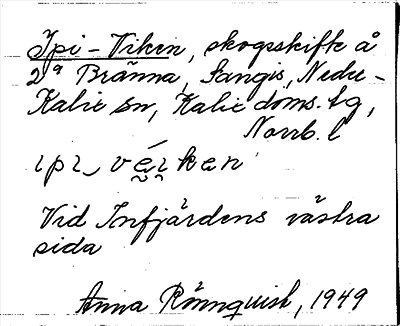 Ipi-Viken, skogsskifte å
2ª Bränna, Sangis, Neder-
Kalix sn, Kalix doms. tg,
Norrb. l
ıpı vé̬ı̯kan
Vid Infjärdens västra
sida
Anna Rönnquist, 1949